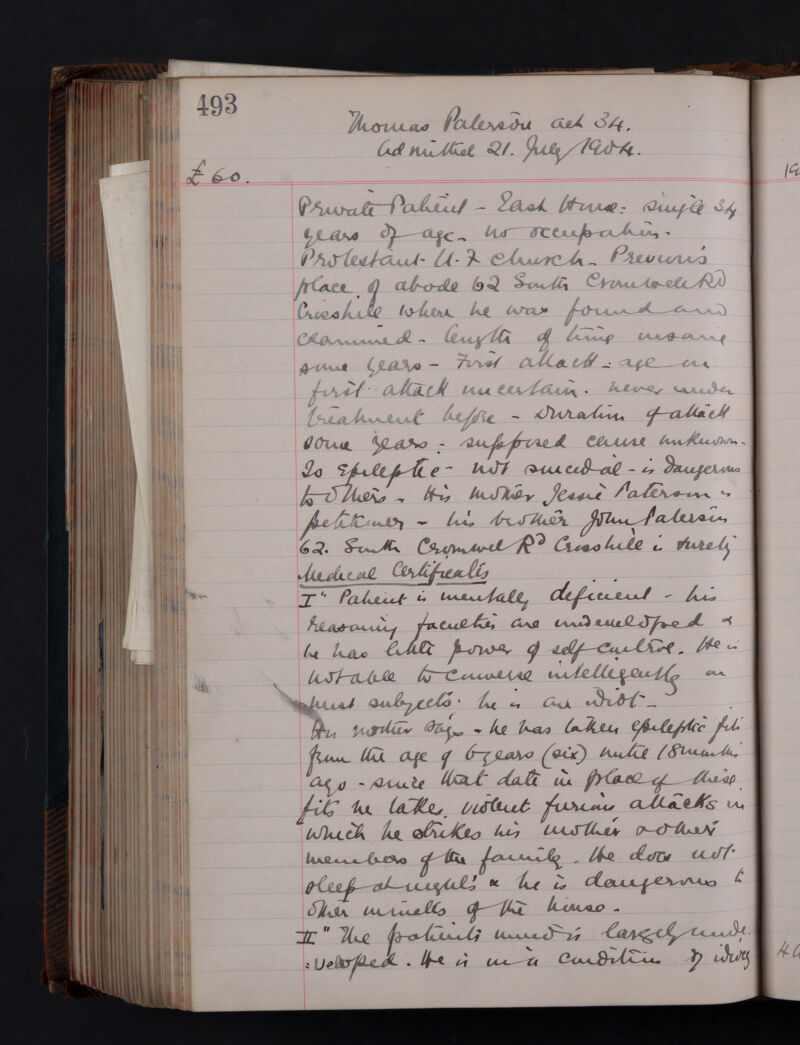 493
Thomas Paterson aet 34.
Admitted 21. July 1904.
£60.
19
Private Patient - East House: single 34
years of age - no occupation.
Protestant U.F church - Previous
place of abode 62 South Cromwell Rd
Crosshill where he was found and
examined - length of time insane
some years - First attack: age on
first attack uncertain. never under
treatment before - Duration of attack
some years: supposed cause unknown -
Is Epileptic - not suicidal - is dangerous
to others - His mother Jessie Paterson is
petitioner - his brother John Paterson
62. South Cromwel Rd Crosshill is surety
Medical Certificates
I" Patient is mentally deficient - his
reasoning faculties are undeveloped &
he has little power of self control. He is
not able to converse intelligently on
most subjects. he is an idiot -
His mother says - he has taken epileptic fits
from the age of 6 years (six) until 18 months
ago - since that date in place of these
fits he takes violent furious attacks in
which he strikes his mother & other
members of the family. He does not
sleep at nights & he is dangerous to
other inmates of the house.
II" The patients mind is largely unde
:veloped. He is in a condition of idiocy